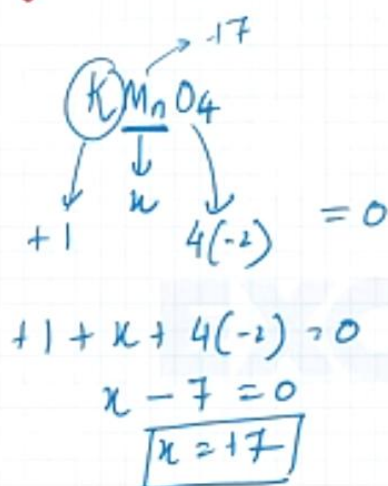 +7
KMnO4
x
+1 4(-2) = 0
+1 + x + 4(-2) = 0
x - 7 = 0
x = +7